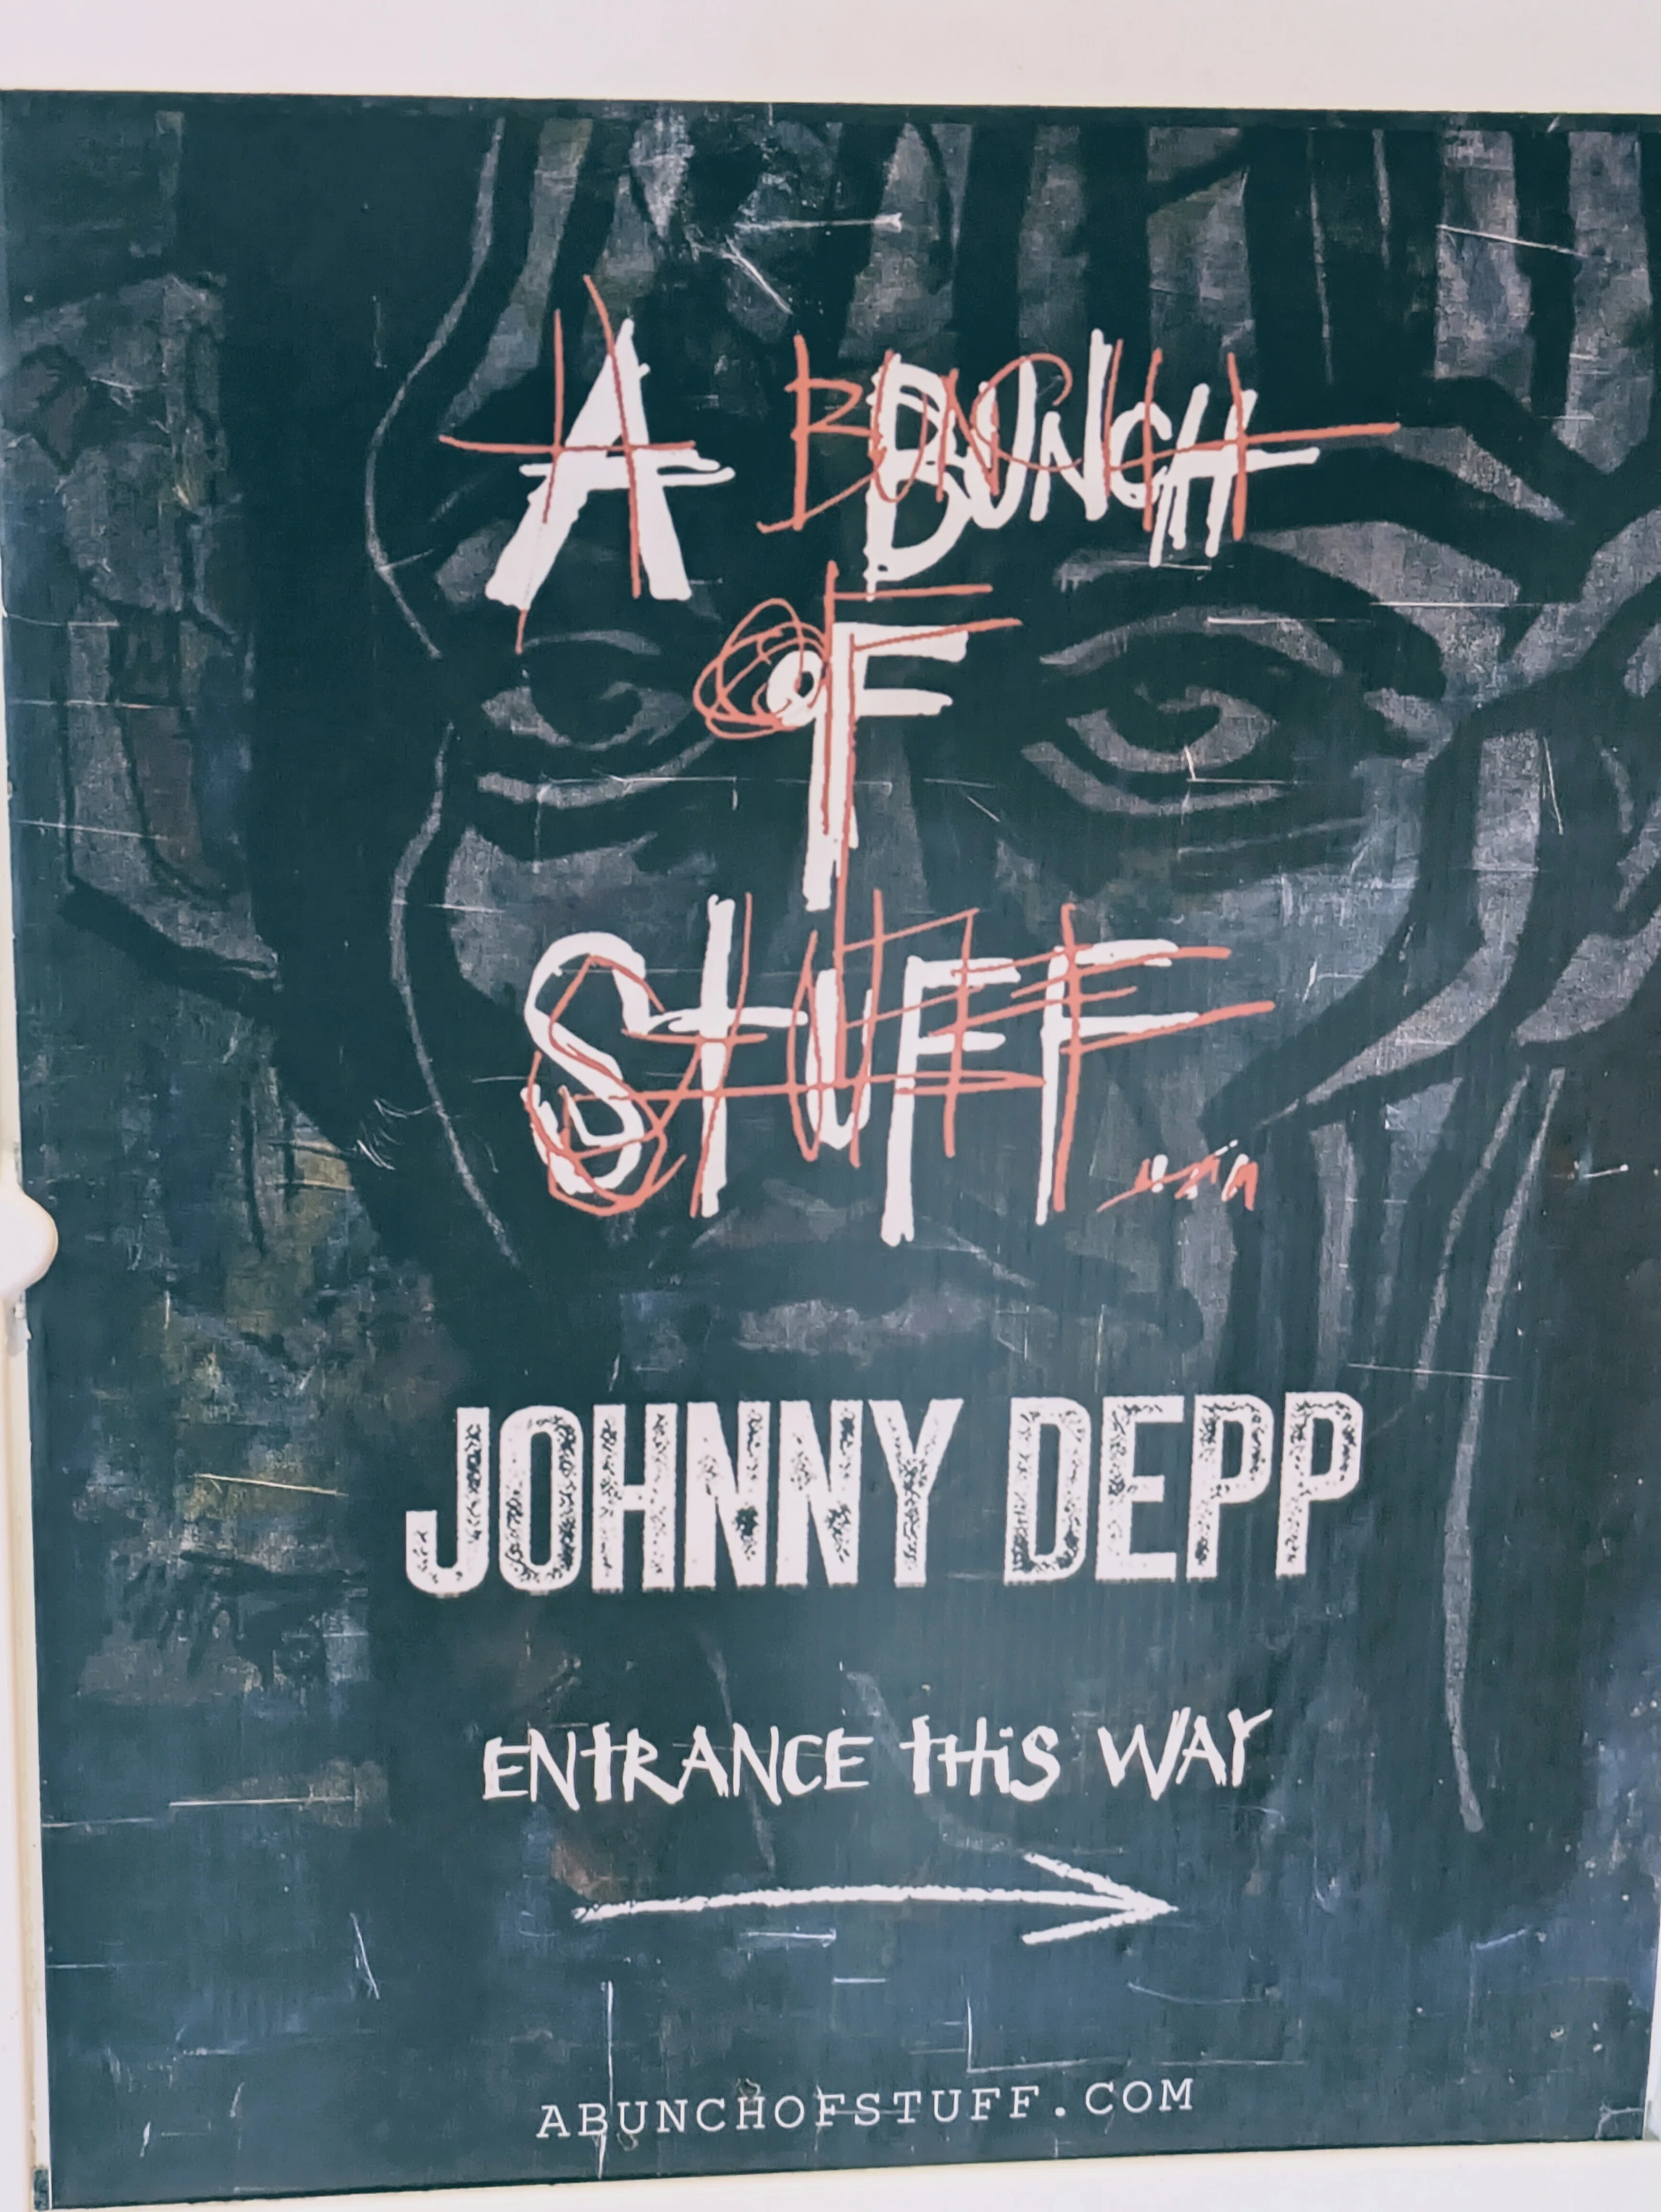 A BUNCH
OF
STUFF...
JOHNNY DEPP
ENTRANCE THiS WAY
ABUNCHOFSTUFF.COM